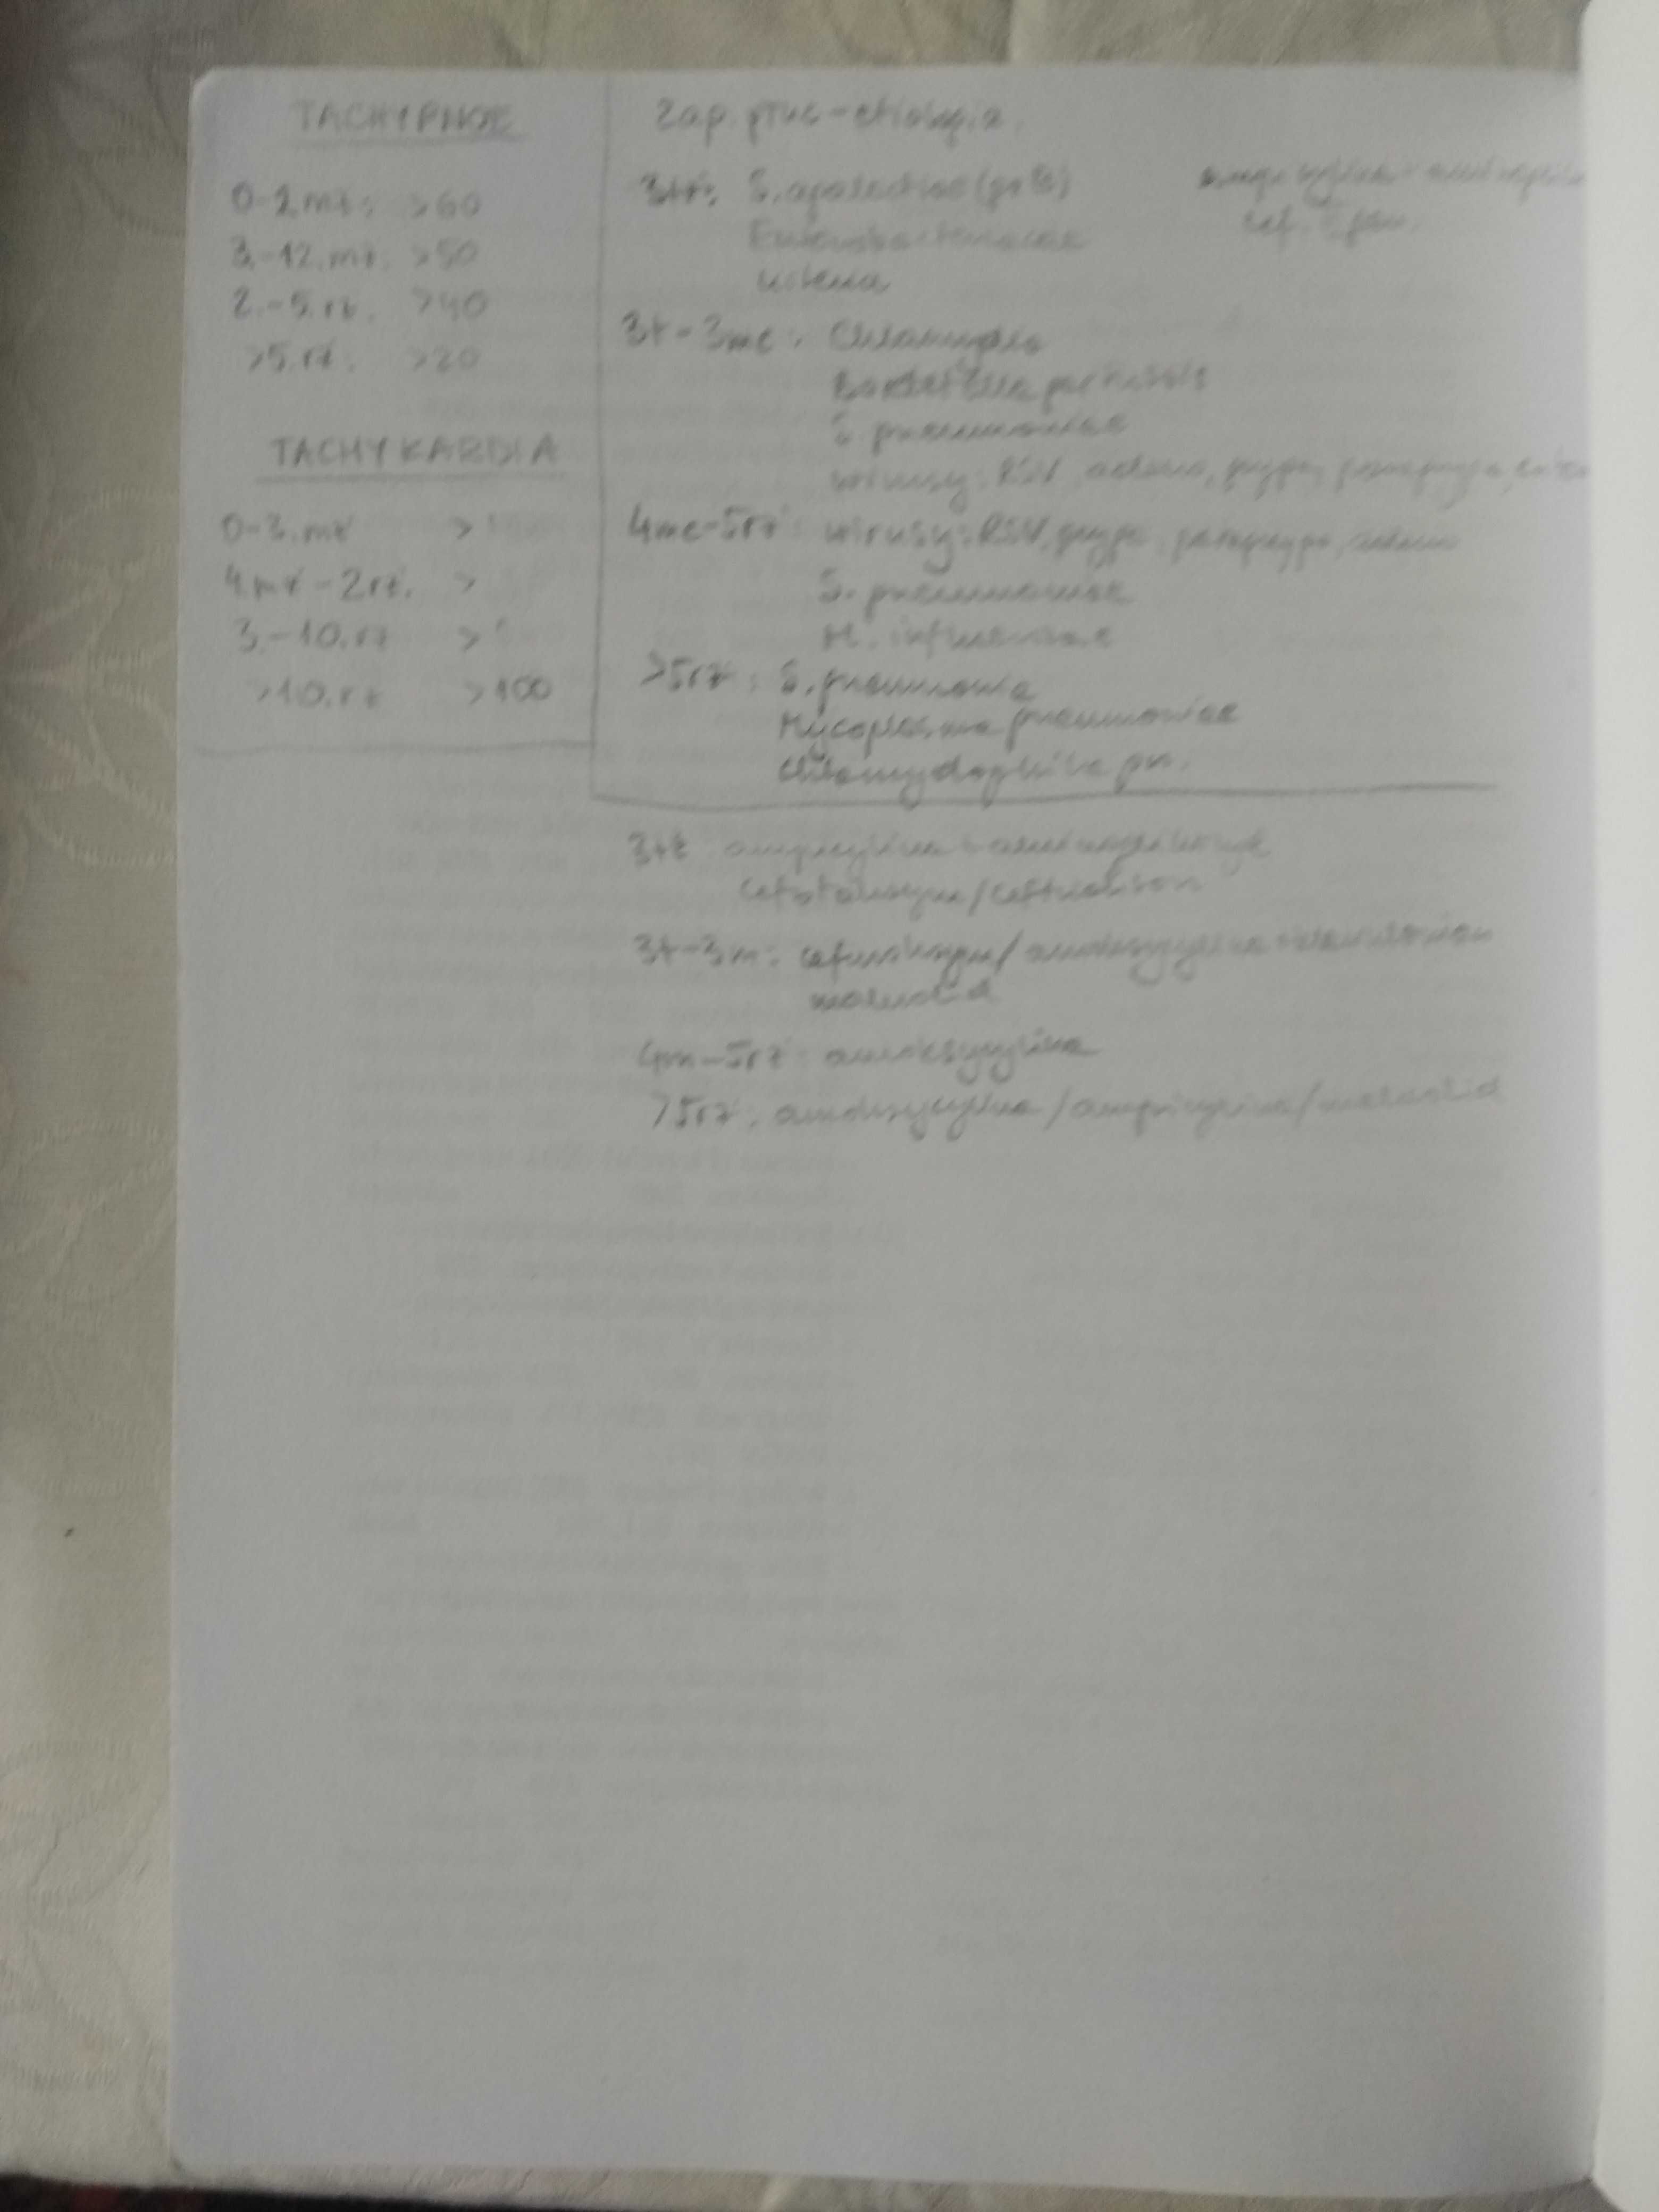 TACHYPNOE
0-2.mż: >60
3.-12.mż. >50
2.-5.rż. >40
>5.rż. >20
TACHYKARDIA
0-3.mż >
4.mż - 2rż. >
3.-10.rż >
>10.rż >100
Zap. płuc - etiologia
3tż: S. agalactiae (grB)
Enterobacteriaceae
3t - 3mc: Chlamydia
Bordetella pertussis
S. pneumoniae
wirusy: RSV, adeno, grypa, paragrypa,
4mc-5rż: wirusy: RSV, grypa, paragrypa, adeno
S. pneumoniae
H. influenzae
>5rż: S. pneumonia
Mycoplasma pneumoniae
pn.
3tż ampicylina + aminoglikozyd
cefotaksym/ceftriakson
3t-3m: cefuroksym/ amoksycylina +
makrolid
4m-5rż: amoksycylina
>5rż: amoksycylina/ampicylina/makrolid